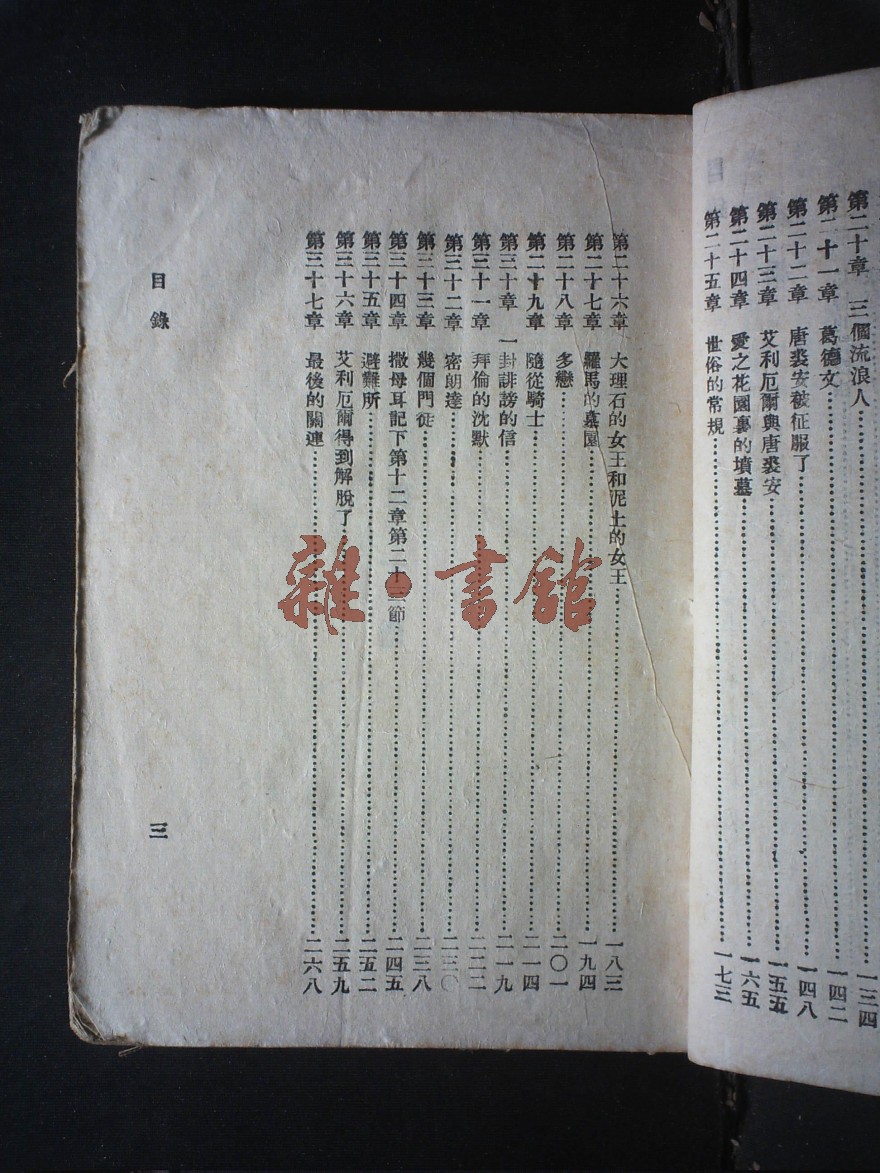 第二十章　三個流浪人……一三四
第二十一章　葛德文……一四二
第二十二章　唐裘安被征服了……一四八
第二十三章　艾利厄爾與唐裘安……一五五
第二十四章　愛之花園裏的墳墓……一六五
第二十五章　世俗的常規……一七三
第二十六章　大理石的女王和泥土的女王……一八三
第二十七章　羅馬的墓園……一九四
第二十八章　多戀……二〇一
第二十九章　隨從騎士……二一四
第三十章　一封誹謗的信……二一九
第三十一章　拜倫的沈默……二二二
第三十二章　密朗達……二三〇
第三十三章　幾個門徒……二三八
第三十四章　撒母耳記下第十二章第二十三節……二四五
第三十五章　避難所……二五二
第三十六章　艾利厄爾得到解脫了……二五九
第三十七章　最後的關連……二六八
目錄
三
雜·書館